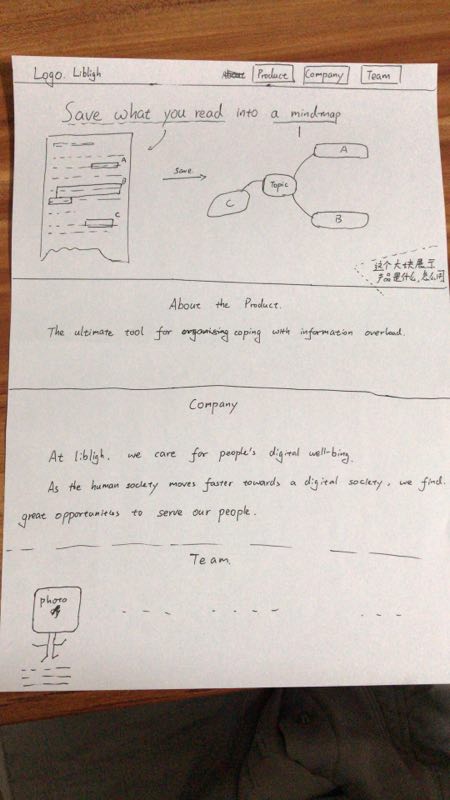 Logo. Libligh
Product
Company
Team
Save what you read into a mind-map
A
B
C
save
Topic
A
C
B
这个大块展示
产品是什么,怎么用
About the Product.
The ultimate tool for organising coping with information overload.
Company
At libligh. we care for people's digital well-bing.
As the human society moves faster towards a digital society, we find.
great opportunities to serve our people.
Team.
photo